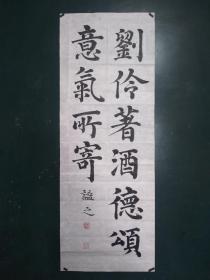 劉伶著酒德頌
意氣所寄
謐之